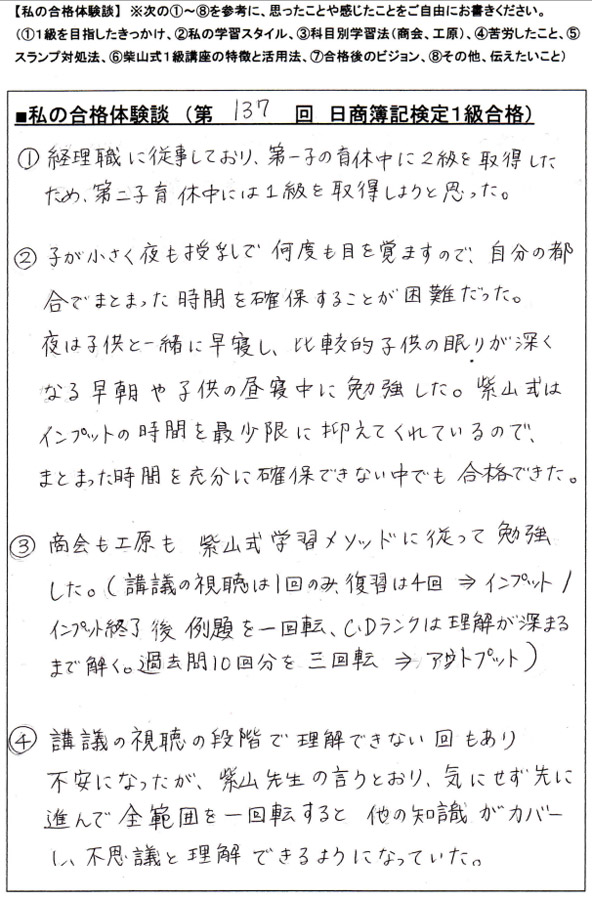 【私の合格体験談】 ※次の①～⑧を参考に、思ったことや感じたことをご自由にお書きください。
（①１級を目指したきっかけ、②私の学習スタイル、③科目別学習法（商会、工原）、④苦労したこと、⑤
スランプ対処法、⑥柴山式１級講座の特徴と活用法、⑦合格後のビジョン、⑧その他、伝えたいこと）
■私の合格体験談 （第 137 回 日商簿記検定１級合格）
① 経理職に従事しており、第一子の育休中に２級を取得した
ため、第二子育休中には１級を取得しようと思った。
② 子が小さく夜も授乳で何度も目を覚ますので、自分の都
合でまとまった時間を確保することが困難だった。
夜は子供と一緒に早寝し、比較的子供の眠りが深く
なる早朝や子供の昼寝中に勉強した。紫山式は
インプットの時間を最少限に抑えてくれているので、
まとまった時間を充分に確保できない中でも合格できた。
③ 商会も工原も 紫山式学習メソッドに従って勉強
した。（講議の視聴は1回のみ、復習は4回 ⇒ インプット /
インプット終了後 例題を一回転、C,Dランクは理解が深まる
まで解く。過去問10回分を三回転 ⇒ アウトプット）
④ 講議の視聴の段階で理解できない回もあり
不安になったが、紫山先生の言うとおり、気にせず先に
進んで全範囲を一回転すると 他の知識がカバー
し、不思議と理解できるようになっていた。